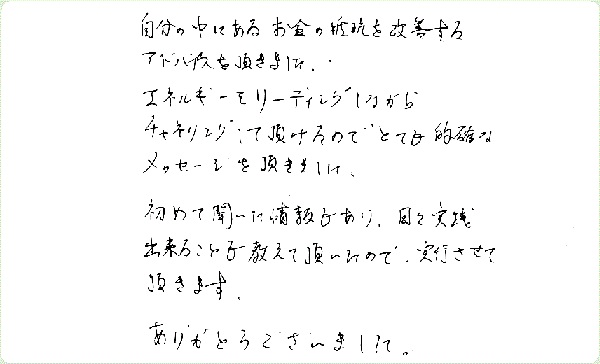 自分の中にあるお金の抵抗を改善する
アドバイスを頂きました。
エネルギーをリーディングしながら
チャネリングして頂けるのでとても的確な
メッセージを頂きました。
初めて聞いた情報もあり、日々実践
出来ることも教えて頂いたので、実行させて
頂きます。
ありがとうございました。